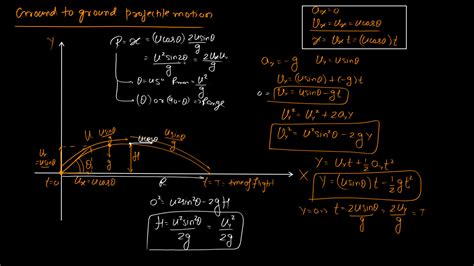 Ground to ground projectile motion
aₓ=0
Uₓ=uₓ=ucosθ
x=Uₓt=(ucosθ)t
R=x=(ucosθ)2usinθ/g
=u²sin2θ/g=2uₓuᵧ/g
→θ=45° Rmax=u²/g
→(θ) or (90-θ)→Range
aᵧ=-g uᵧ=usinθ
Uᵧ=(usinθ)+(-g)t
0=Uᵧ=usinθ-gt
Uᵧ²=uᵧ²+2aᵧY
Uᵧ²=u²sin²θ-2gY
Y=uᵧt+½aᵧt²
Y=(usinθ)t-½gt²
Y=0⇒ t=2usinθ/g=2uᵧ/g=T
Y
u
usinθ/g
ucosθ
usinθ/g
uᵧ=usinθ
θ
H
X
t=0
uₓ=ucosθ
R
t=T=time of flight
0²=u²sin²θ-2gH
H=u²sin²θ/2g=uᵧ²/2g